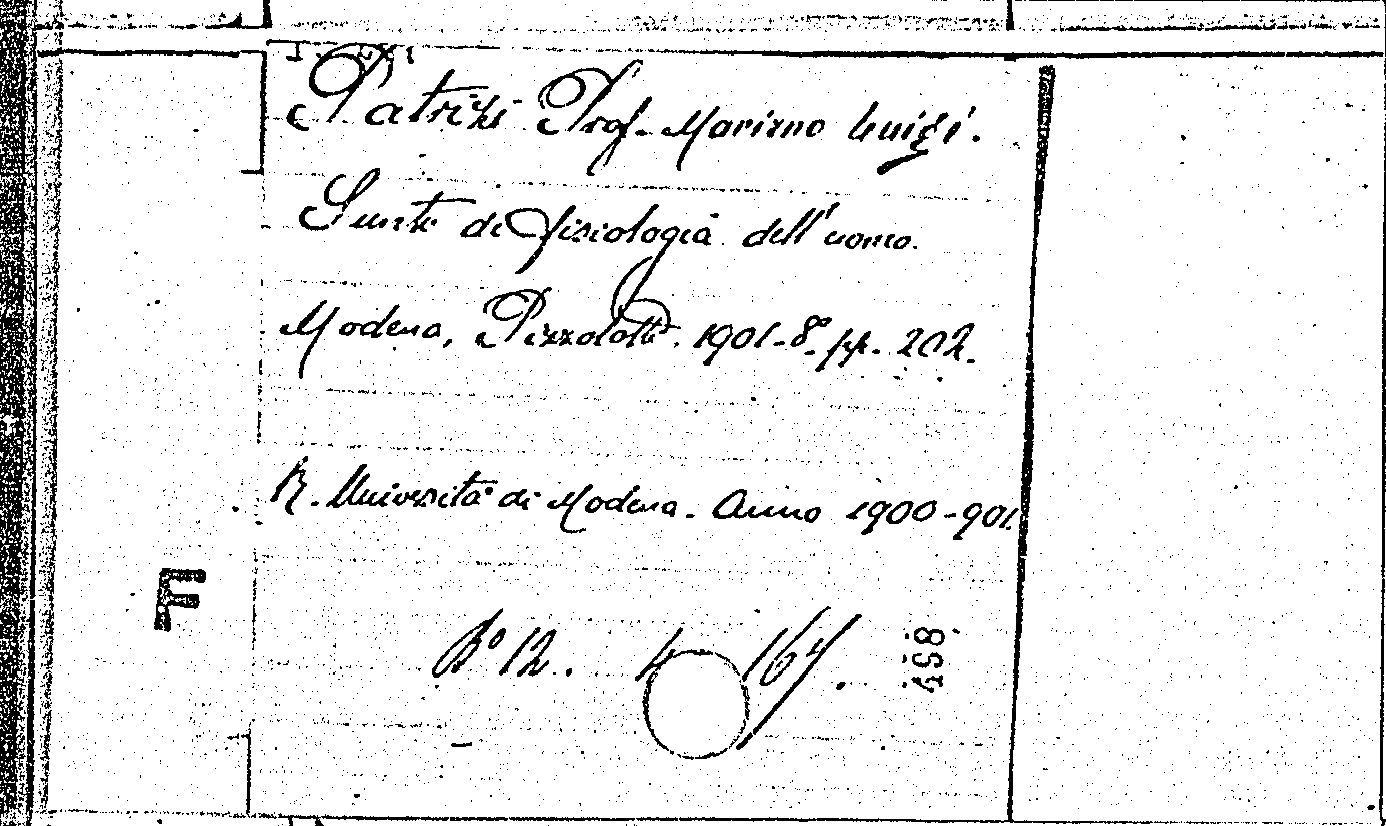 Patrizi Prof. Mariano Luigi.
Sunti di fisiologia dell'uomo.
Modena, Pizzolotti. 1901-8º. pp. 202.
R. Università di Modena. Anno 1900-901.
F
12. 4
498